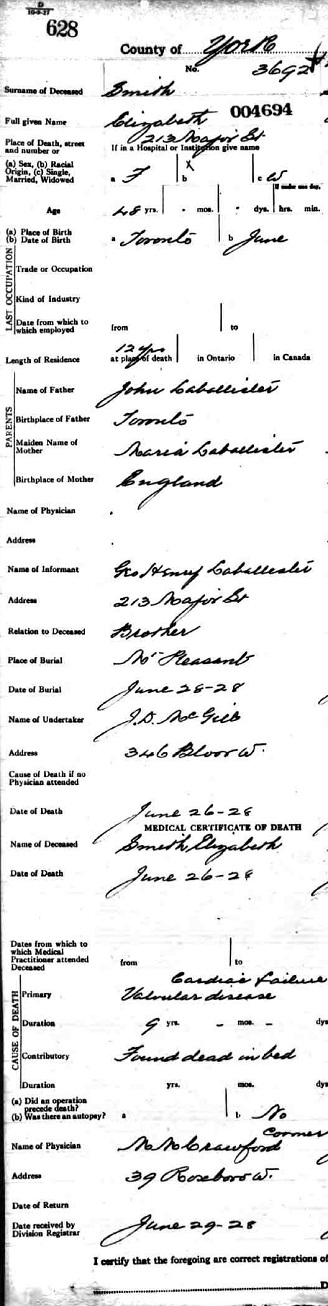 D
10-9-27
628
County of York
No. 3692
Surname of Deceased Smith
Full given Name Elizabeth 004694
213 Major St
Place of Death, street and number or If in a Hospital or Institution give name
(a) Sex, (b) Racial Origin, (c) Single, Married, Widowed a F b X c W
If under one day,
Age 48 yrs. - mos. - dys. hrs. min.
(a) Place of Birth
(b) Date of Birth a Toronto b June
LAST OCCUPATION
Trade or Occupation
Kind of Industry
Date from which to which employed from to
12 yrs
Length of Residence at place of death in Ontario in Canada
PARENTS
Name of Father John Laballister
Birthplace of Father Toronto
Maiden Name of Mother Maria Laballister
Birthplace of Mother England
Name of Physician
Address
Name of Informant Geo Henry Laballister
Address 213 Major St
Relation to Deceased Brother
Place of Burial Mt Pleasant
Date of Burial June 28-28
Name of Undertaker J.D. McGill
Address 346 Bloor W.
Cause of Death if no Physician attended
Date of Death June 26-28
MEDICAL CERTIFICATE OF DEATH
Name of Deceased Smith Elizabeth
Date of Death June 26-28
Dates from which to which Medical Practitioner attended Deceased from to
CAUSE OF DEATH
Cardiac Failure
Primary Valvular disease
Duration 9 yrs. - mos. - dys
Contributory Found dead in bed
Duration yrs. mos. dys
(a) Did an operation precede death?
(b) Was there an autopsy? a b No
Coroner
Name of Physician M M Crawford
Address 39 Roxboro W.
Date of Return
Date received by Division Registrar June 29-28
I certify that the foregoing are correct registrations of
D